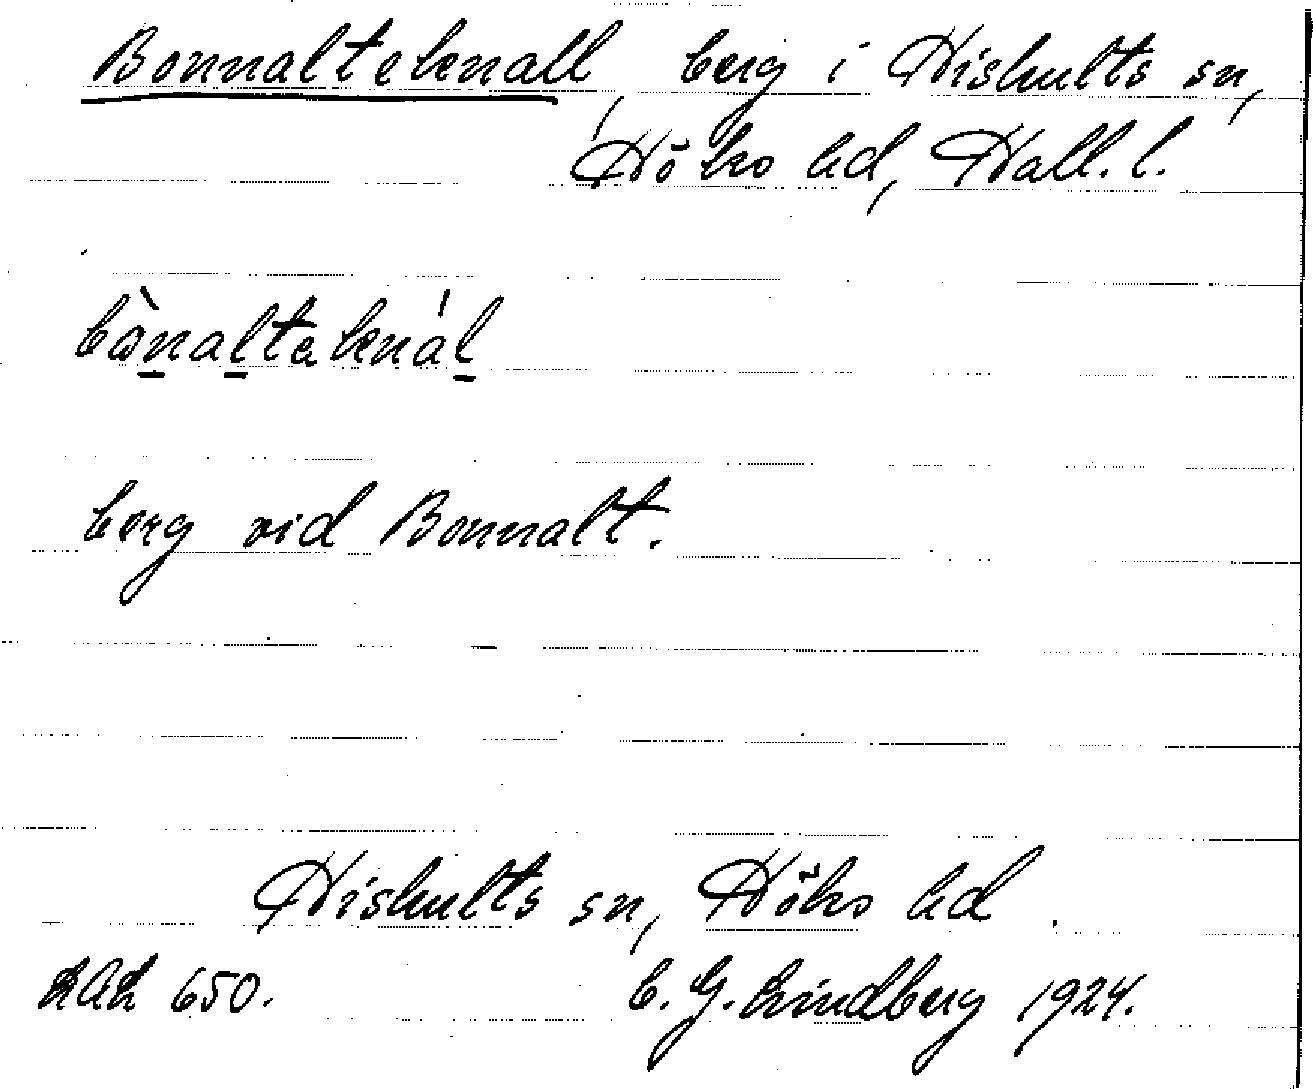 Bonnalteknall, berg i Hishults sn,
Höks hd, Hall. l.
bànalteknál
berg vid Bonnalt.
Hishults sn, Höks hd.
650.
E. G. Lindberg 1924.